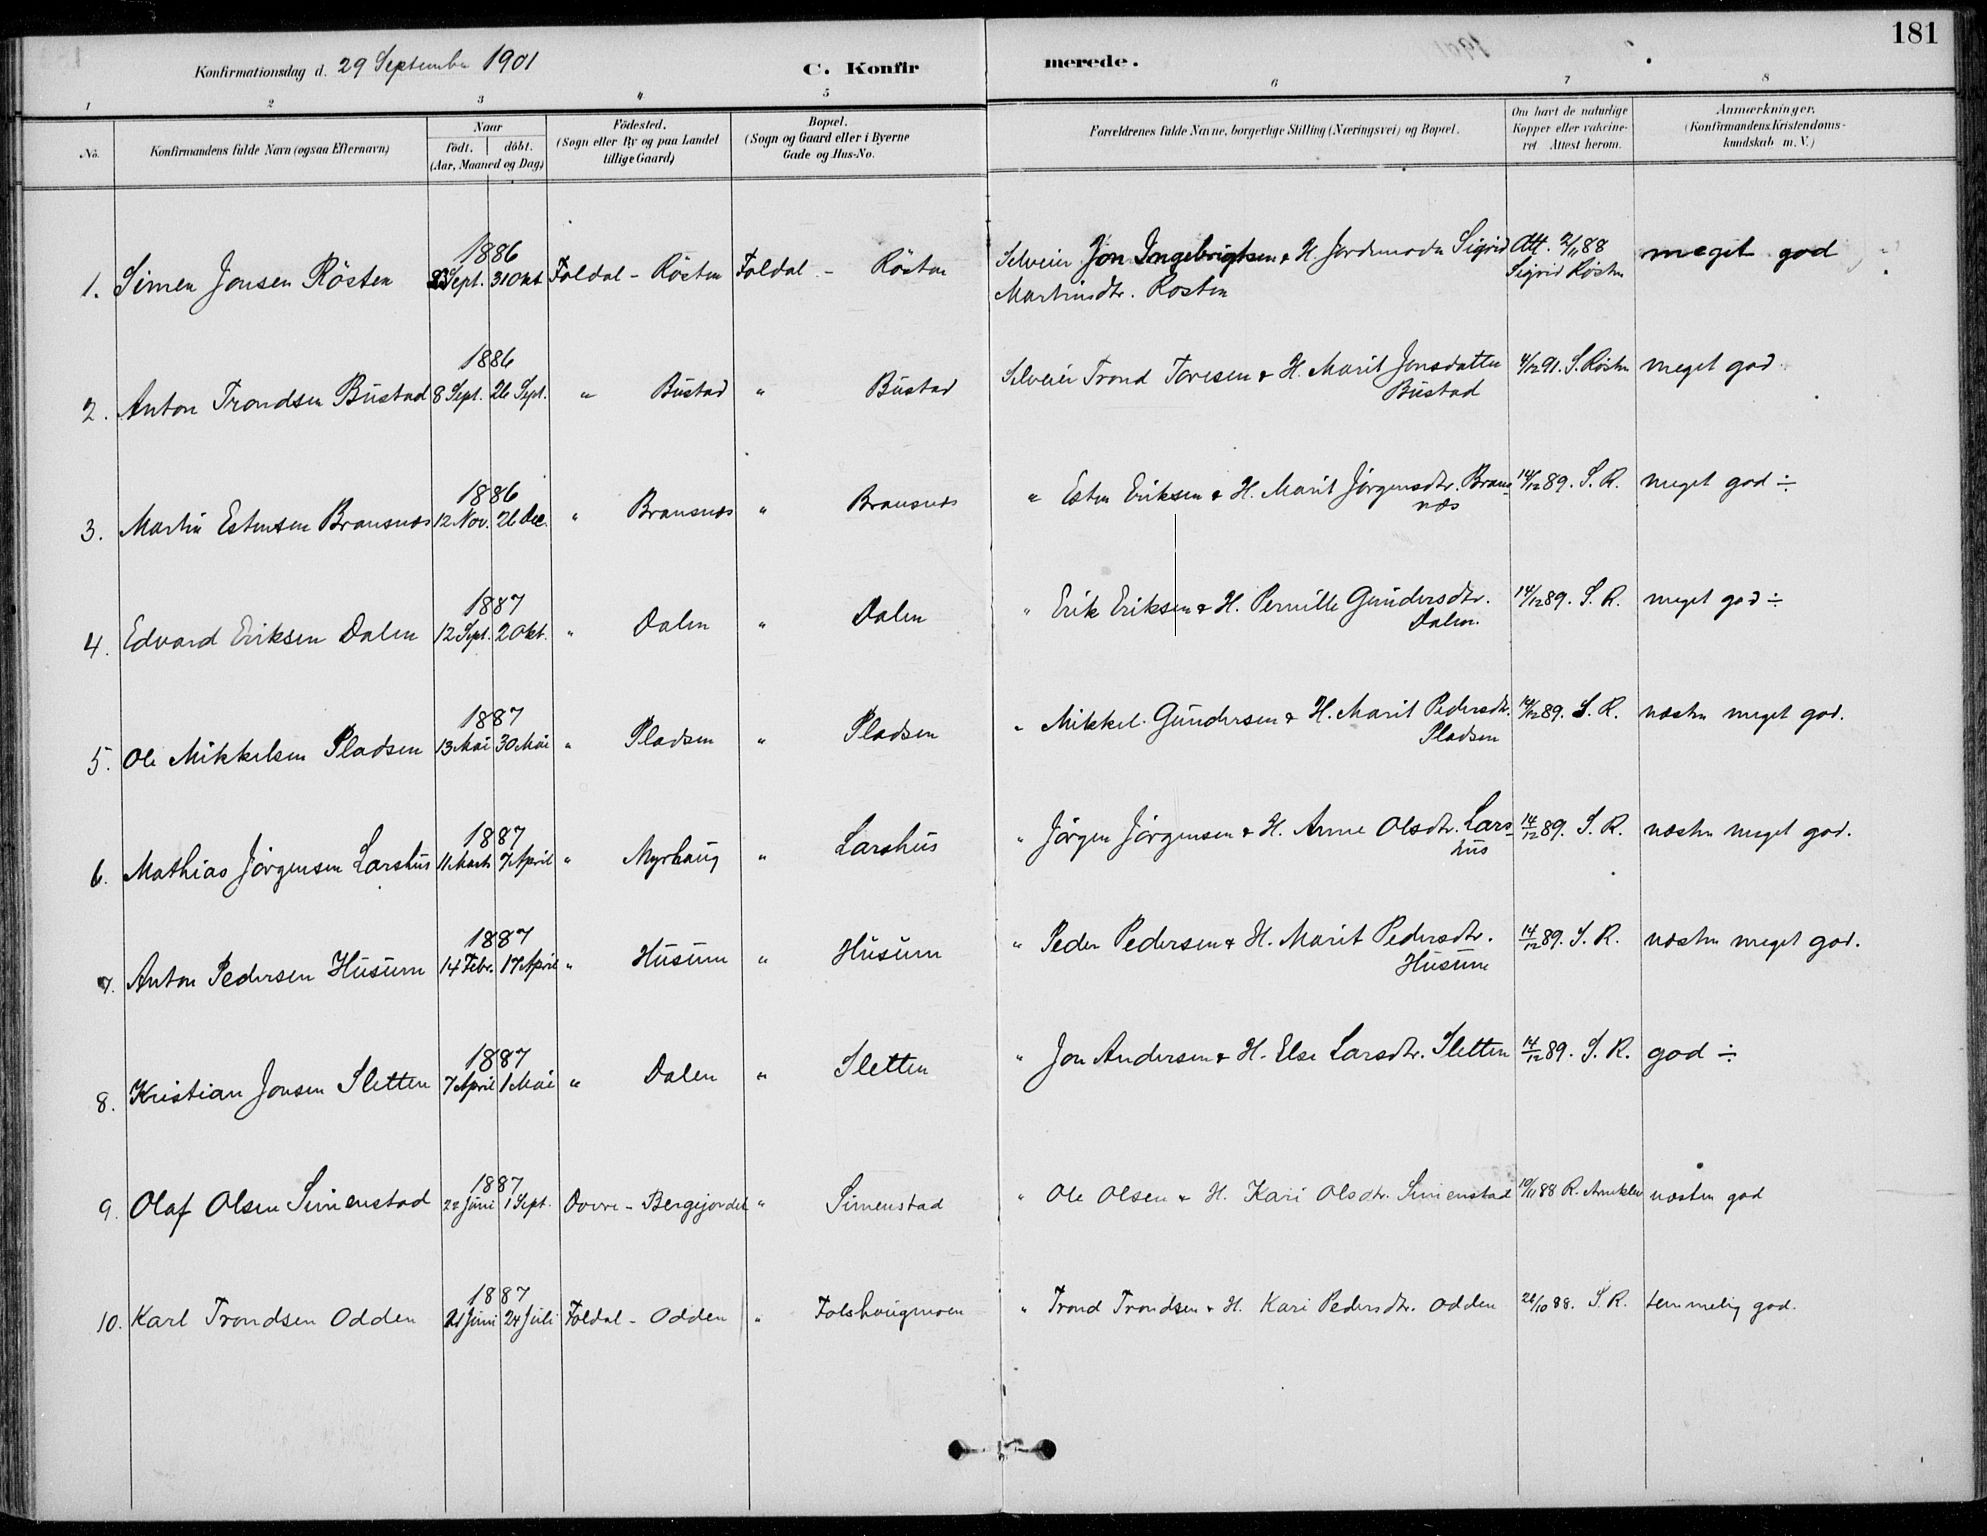 181
Konfirmationsdag d. 29 September 1901 C. Konfirmerede.
1 2 3 4 5 6 7 8
No. Konfirmandens fulde Navn (ogsaa Efternavn) Naar födt. döbt. (Aar, Maaned og Dag) Födested. (Sogn eller By og paa Landet tillige Gaard) Bopæl. (Sogn og Gaard eller i Byerne Gade og Hus-No. Forældrenes fulde Navne, borgerlige Stilling (Næringsvei) og Bopæl. Om havt de naturlige Kopper eller vakcineret. Attest herom. Anmærkninger. (Konfirmandens Kristendomskundskab m. V.)
1886
1. Simen Jonsen Rösten Sept. 31 Okt Foldal - Rösten Foldal - Rösten Selveier Jon Ingebrigtsen & H. Jordmoder Sigrid Att. 2/11 88 meget god
Martinsdtr. Rosten Sigrid Røsten
1886
2. Anton Trondsen Bustad 8 Sept. 26 Sept. " Bustad " Bustad Selveier Trond Toresen & H. Marit Jonsdatter 4/12 91. S. Røsten meget god.
Bustad
1886
3. Martin Estensen Bransnæs 12 Nov. 26 Dec. " Bransnæs " Bransnæs " Esten Eriksen & H. Marit Jörgensdtr. Brans- 14/12 89. S. R. meget god ÷
næs
1887
4. Edvard Eriksen Dalen 12 Sept. 2 Okt. " Dalen " Dalen " Erik Eriksen & H. Pernille Gundersdtr. 14/12 89. S. R. meget god ÷
Dalen.
1887
5. Ole Mikkelsen Pladsen 13 Mai 30 Mai " Pladsen " Pladsen " Mikkel Gundersen & H. Marit Pedersdtr. 14/12 89. S. R. næsten meget god.
Pladsen
1887
6. Mathias Jörgensen Larshus 11 Marts 7 April " Myrhaug " Larshus " Jörgen Jörgensen & H. Anne Olsdtr. Lars- 14/12 89. S. R. næsten meget god.
hus
1887
7. Anton Pedersen Husum 14 Febr. 17 April " Husum " Husum " Peder Pedersen & H. Marit Pedersdtr. 14/12 89. S. R. næsten meget god.
Husum
1887
8. Kristian Jonsen Sletten 7 April 1 Mai " Dalen " Sletten " Jon Andersen & H. Else Larsdtr. Sletten 14/12 89. S. R. god ÷
1887
9. Olaf Olsen Simenstad 22 Juni 1 Sept. Dovre - Bergejordet " Simenstad " Ole Olsen & H. Kari Olsdtr. Simenstad 10/11 88 R. næsten god
1887
10. Karl Trondsen Odden 21 Juni 24 Juli Foldal - Odden " Folshaugmoen " Trond Trondsen & H. Kari Pedersdtr. Odden 28/10 88. S. R. temmelig god.